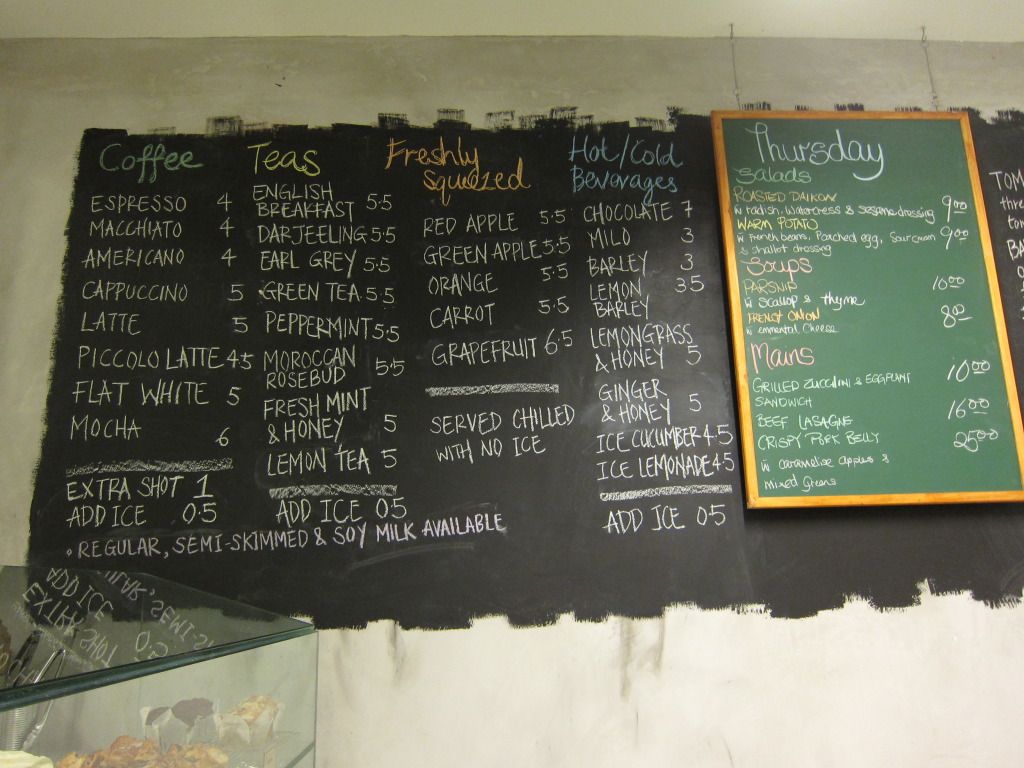 Coffee
ESPRESSO 4
MACCHIATO 4
AMERICANO 4
CAPPUCCINO 5
LATTE 5
PICCOLO LATTE 4.5
FLAT WHITE 5
MOCHA 6
EXTRA SHOT 1
ADD ICE 0.5
Teas
ENGLISH
BREAKFAST 5.5
DARJEELING 5.5
EARL GREY 5.5
GREEN TEA 5.5
PEPPERMINT 5.5
MOROCCAN
ROSEBUD 5.5
FRESH MINT
& HONEY 5
LEMON TEA 5
ADD ICE 0.5
• REGULAR, SEMI-SKIMMED & SOY MILK AVAILABLE
Freshly
squeezed
RED APPLE 5.5
GREEN APPLE 5.5
ORANGE 5.5
CARROT 5.5
GRAPEFRUIT 6.5
SERVED CHILLED
WITH NO ICE
Hot/Cold
Beverages
CHOCOLATE 7
MILO 3
BARLEY 3
LEMON 3.5
BARLEY
LEMONGRASS
& HONEY 5
GINGER
& HONEY 5
ICE CUCUMBER 4.5
ICE LEMONADE 4.5
ADD ICE 0.5
Thursday
Salads
ROASTED DAIKON
w radish, watercress & sesame dressing 9.00
WARM POTATO
w french beans, Poached egg, Sour cream 9.00
& shallot dressing
Soups
PARSNIP 10.00
w scallop & thyme
FRENCH ONION 8.00
w emmental cheese
Mains
GRILLED ZUCCHINI & EGGPLANT 10.00
SANDWICH
BEEF LASAGNE 16.00
CRISPY PORK BELLY 25.00
w caramelise apples &
mixed greens
TOM